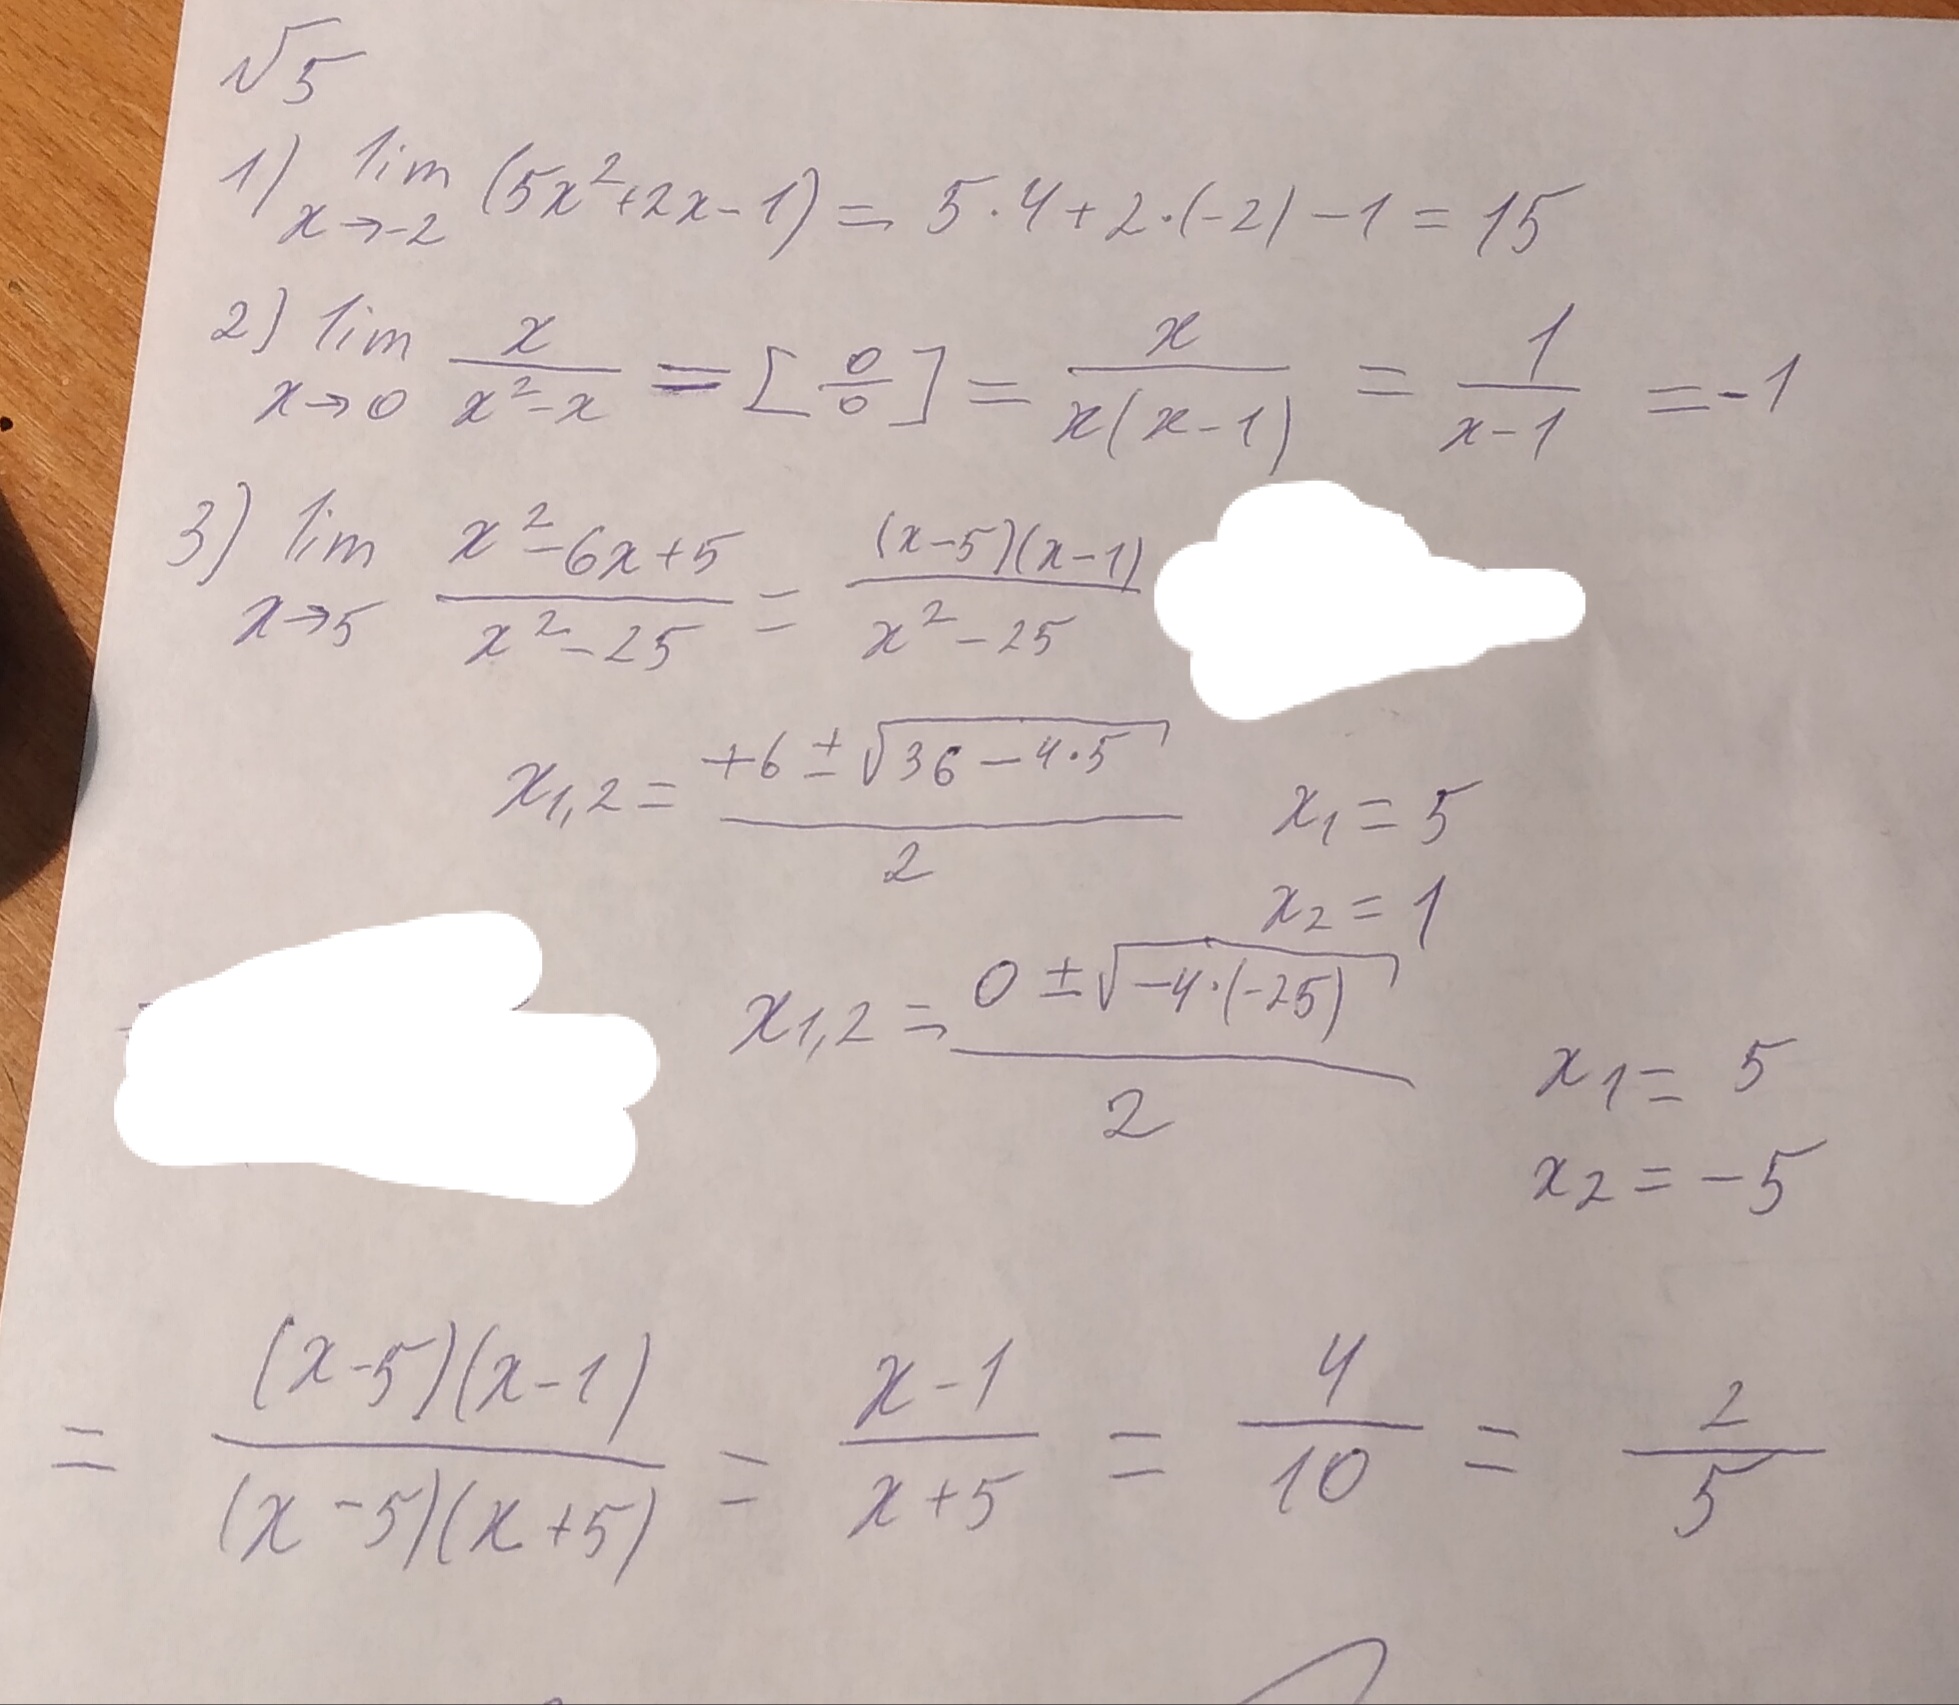 √5
1) lim x→-2 (5x²+2x-1) = 5·4+2·(-2)-1 = 15
2) lim x→0 x/(x²-x) = [0/0] = x/(x(x-1)) = 1/(x-1) = -1
3) lim x→5 (x²-6x+5)/(x²-25) = ((x-5)(x-1))/(x²-25)
x1,2 = (+6±√(36-4·5))/2
x1 = 5
x2 = 1
x1,2 = (0±√(-4·(-25)))/2
x1 = 5
x2 = -5
= ((x-5)(x-1))/((x-5)(x+5)) = (x-1)/(x+5) = 4/10 = 2/5